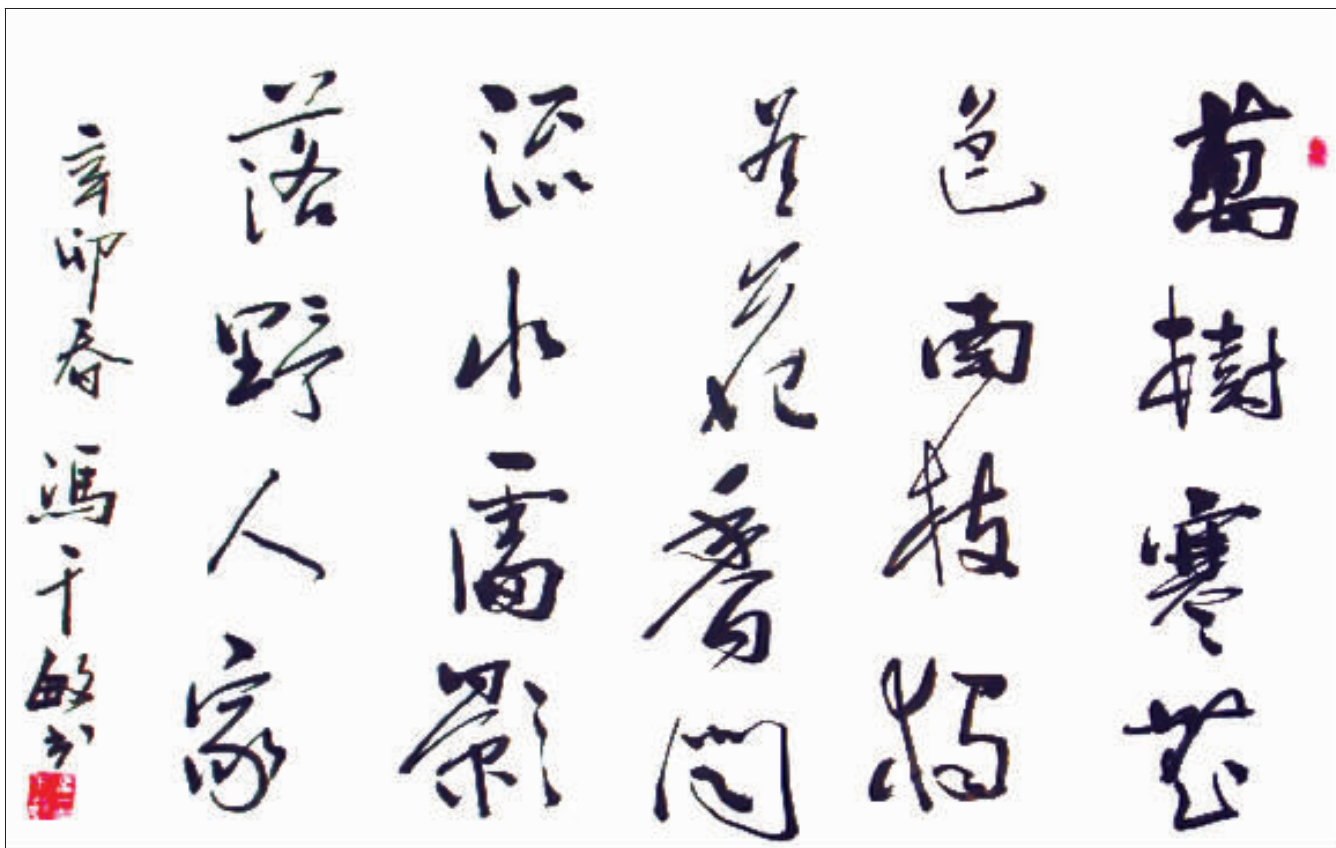 萬樹寒無
色南枝獨
着花香聞
流水影
落野人家
辛卯春 馮千敏书